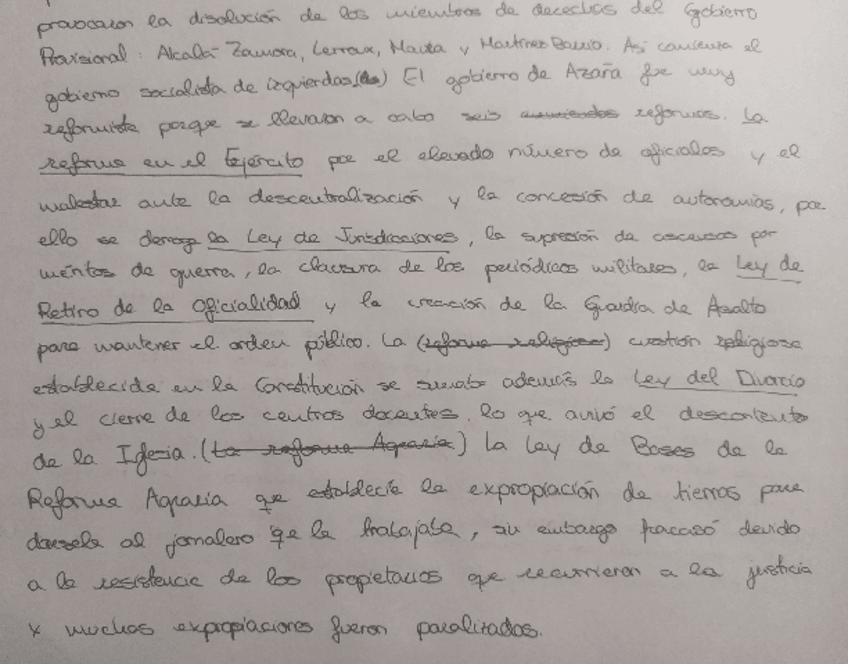 provocaron la disolución de los miembros de derechas del Gobierro
Provisional: Alcalá-Zamora, Lerroux, Maura y Martínez Barrio. Así comienza el
gobierno socialista de izquierdas. El gobierno de Azaña fue muy
reformista porque se llevaron a cabo seis reformas. La
reforma en el Ejército por el elevado número de oficiales y el
malestar ante la descentralización y la concesión de autonomías, por
ello se deroga la Ley de Jurisdicciones, la supresión de ascensos por
méritos de guerra, la clausura de los periódicos militares, la Ley de
Retiro de la Oficialidad y la creación de la Guardia de Asalto
para mantener el orden público. La (reforma religiosa) cuestión religiosa
establecida en la Constitución se sumaba además la Ley del Divorcio
y el cierre de los centros docentes, lo que avivó el descontento
de la Iglesia. (La reforma Agraria) La Ley de Bases de la
Reforma Agraria que establecía la expropiación de tierras para
darsela al jornalero que la trabajaba, sin embargo fracasó devido
a la resistencia de los propietarios que recurrieron a la justicia
y muchas expropiaciones fueron paralizadas.